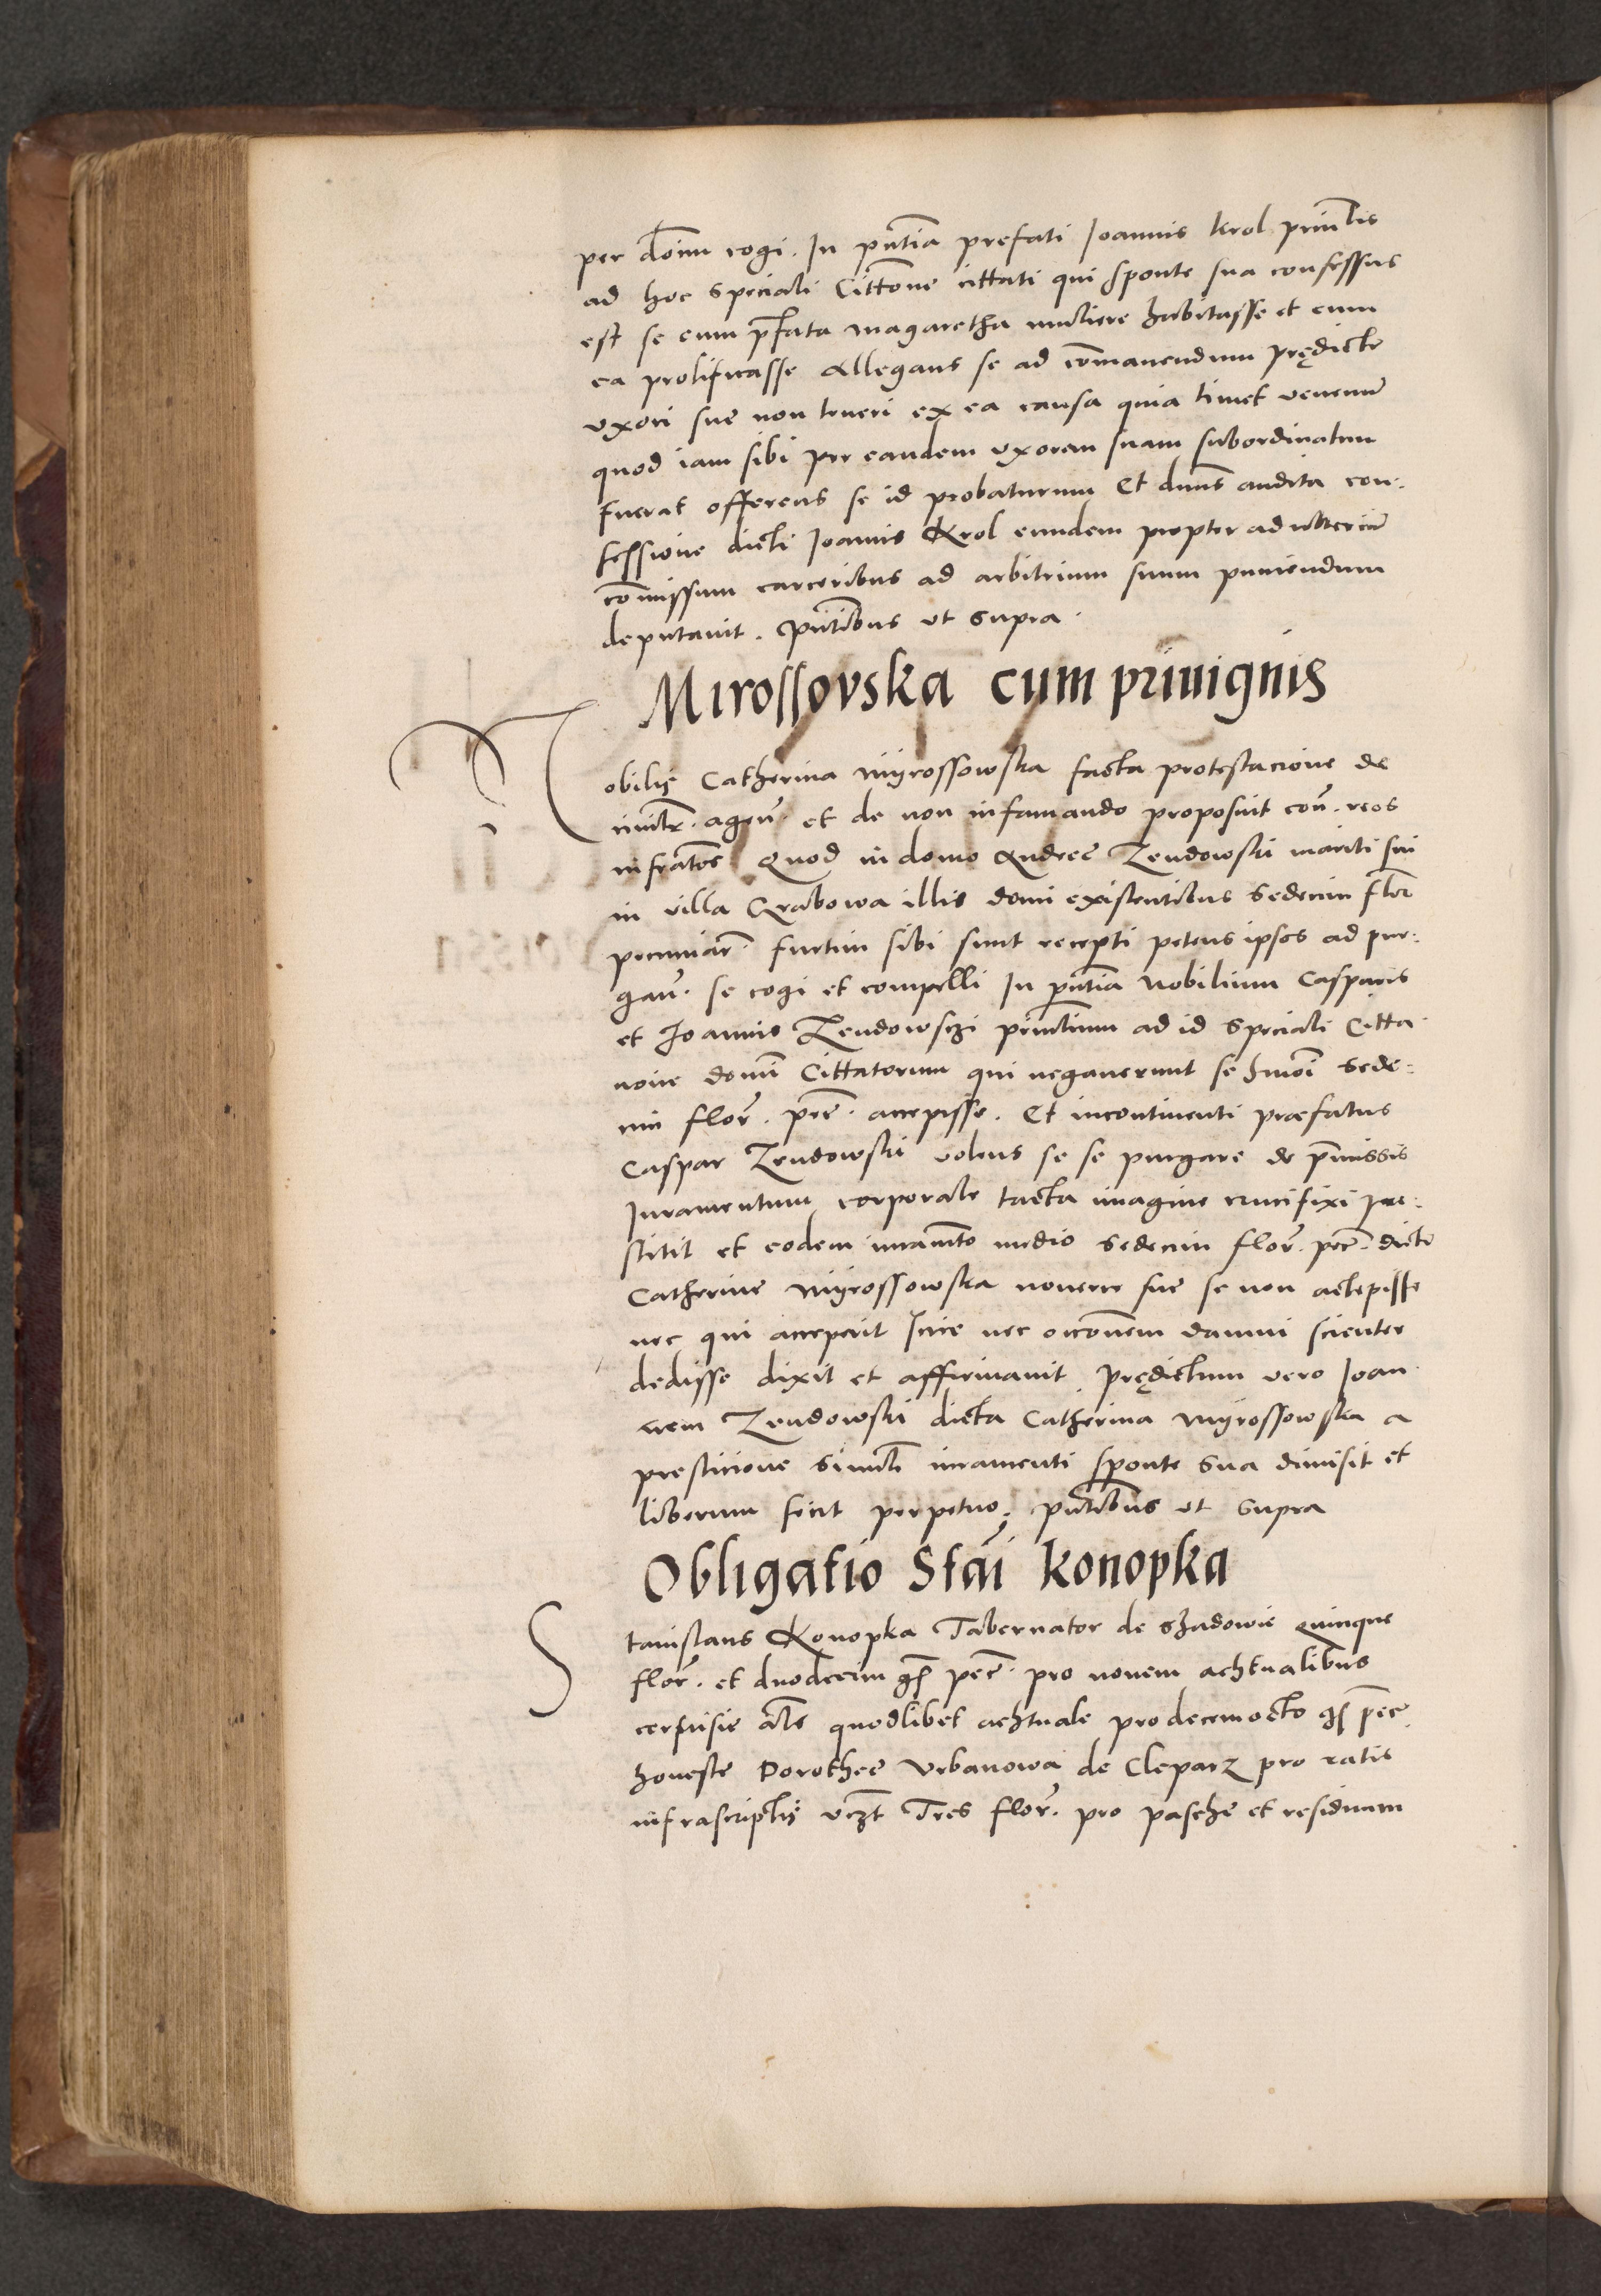 per do͞im cogi. In pn̄tia prefati Joannis Krol prin͞tlis
ad hoc speciali Citt͞one cittati qui sponte sua confessus
est se cum pr͞fata magaretha muliere habitasse et cum
ea prolificasse Allegans se ad co͞manendum prędicte
vxori sue non teneri ex ea causa quia timet venenū
quod iam sibi per eandem vxorem suam subordinatum
fuerat offerens se id probaturum Et dn̄us audita con:
fessione dicti Joannis Krol eundem propter adulteriū
co͞missum carceribus ad arbitrium suum puniendum
deputauit. pn̄tibus vt supra.
Mirossovska cum priuignis
Nobilis Catherina Myrossowska facta protestacione de
ciuilr̄. agen̄. et de non infamando proposuit con̄. reos
infra͞tos Quod in domo Andree Zendowski mariti sui
in villa Grabowa illis domi existentibus sedecim flor̄
pecuniar̄. furtim sibi sunt recepti petens ipsos ad pur:
gan̄. se cogi et compelli In pn̄tia Nobilium Casparis
et Joannis Zendowsczi prin͞tlium ad id speciali Citta
cione domi͞ Cittatorum qui negauerunt se hmo͞i sede:
cim flor̄. pec̄. accepisse. Et incontinenti præfatus
Caspar Zendowski volens se se purgare de pr͞missis
Juramentum corporale tacta imagine crucifixi pre:
stitit et eodem iuram͞to medio sedecim flor̄. pec̄. dicte
Catherine Myrossowska nouerce sue se non accepisse
nec qui acceperit scire nec occ͞onem damni scienter
dedisse dixit et affirmauit. prędictum vero Joan
nem Zendowski dicta Catherina Myrossowska a
presticione simil͞i iuramenti sponte sua dimisit et
liberum fecit perpetuo. pn̄tibus vt supra
Obligatio Sta͞i Konopka
Stanislaus Konopka Tabernator de Shadowie quinque
flor̄. et duodecim gs̄ pec̄. pro nouem achtualibus
ceruisie al͞s quodlibet achtuale pro decemocto gs̄ pec̄.
honeste Dorothee Vrbanowa de Cleparz pro ratis
infrascriptis vz͞t Tres flor̄. pro pasche et residuum